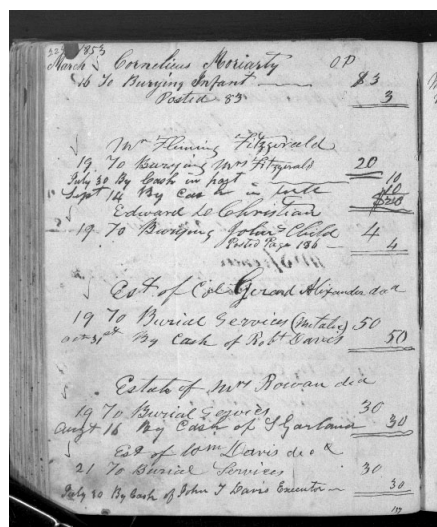 1853
March Cornelius Moriarty OP
16 To Burying Infant $3
Posted 83 3
Mr Fleming Fitzgerald
19 To Burying Mrs Fitzgerald 20
July 30 By Cash in part 10
Sept 14 By Cash in full 10
$20
Edward D Christian
19 To Burying John's Child 4
Posted Page 186 4
Est. of Col Gerard Alexander decd
19 To Burial Services (Metalic) 50
Oct 31st By Cash of Robt Davis 50
Estate of Mrs Rowan decd
19 To Burial Services 30
Augt 16 By Cash of S Garland 30
Est of Wm Davis decd
21 To Burial Services 30
July 30 By Cash of John T Davis Executor 30